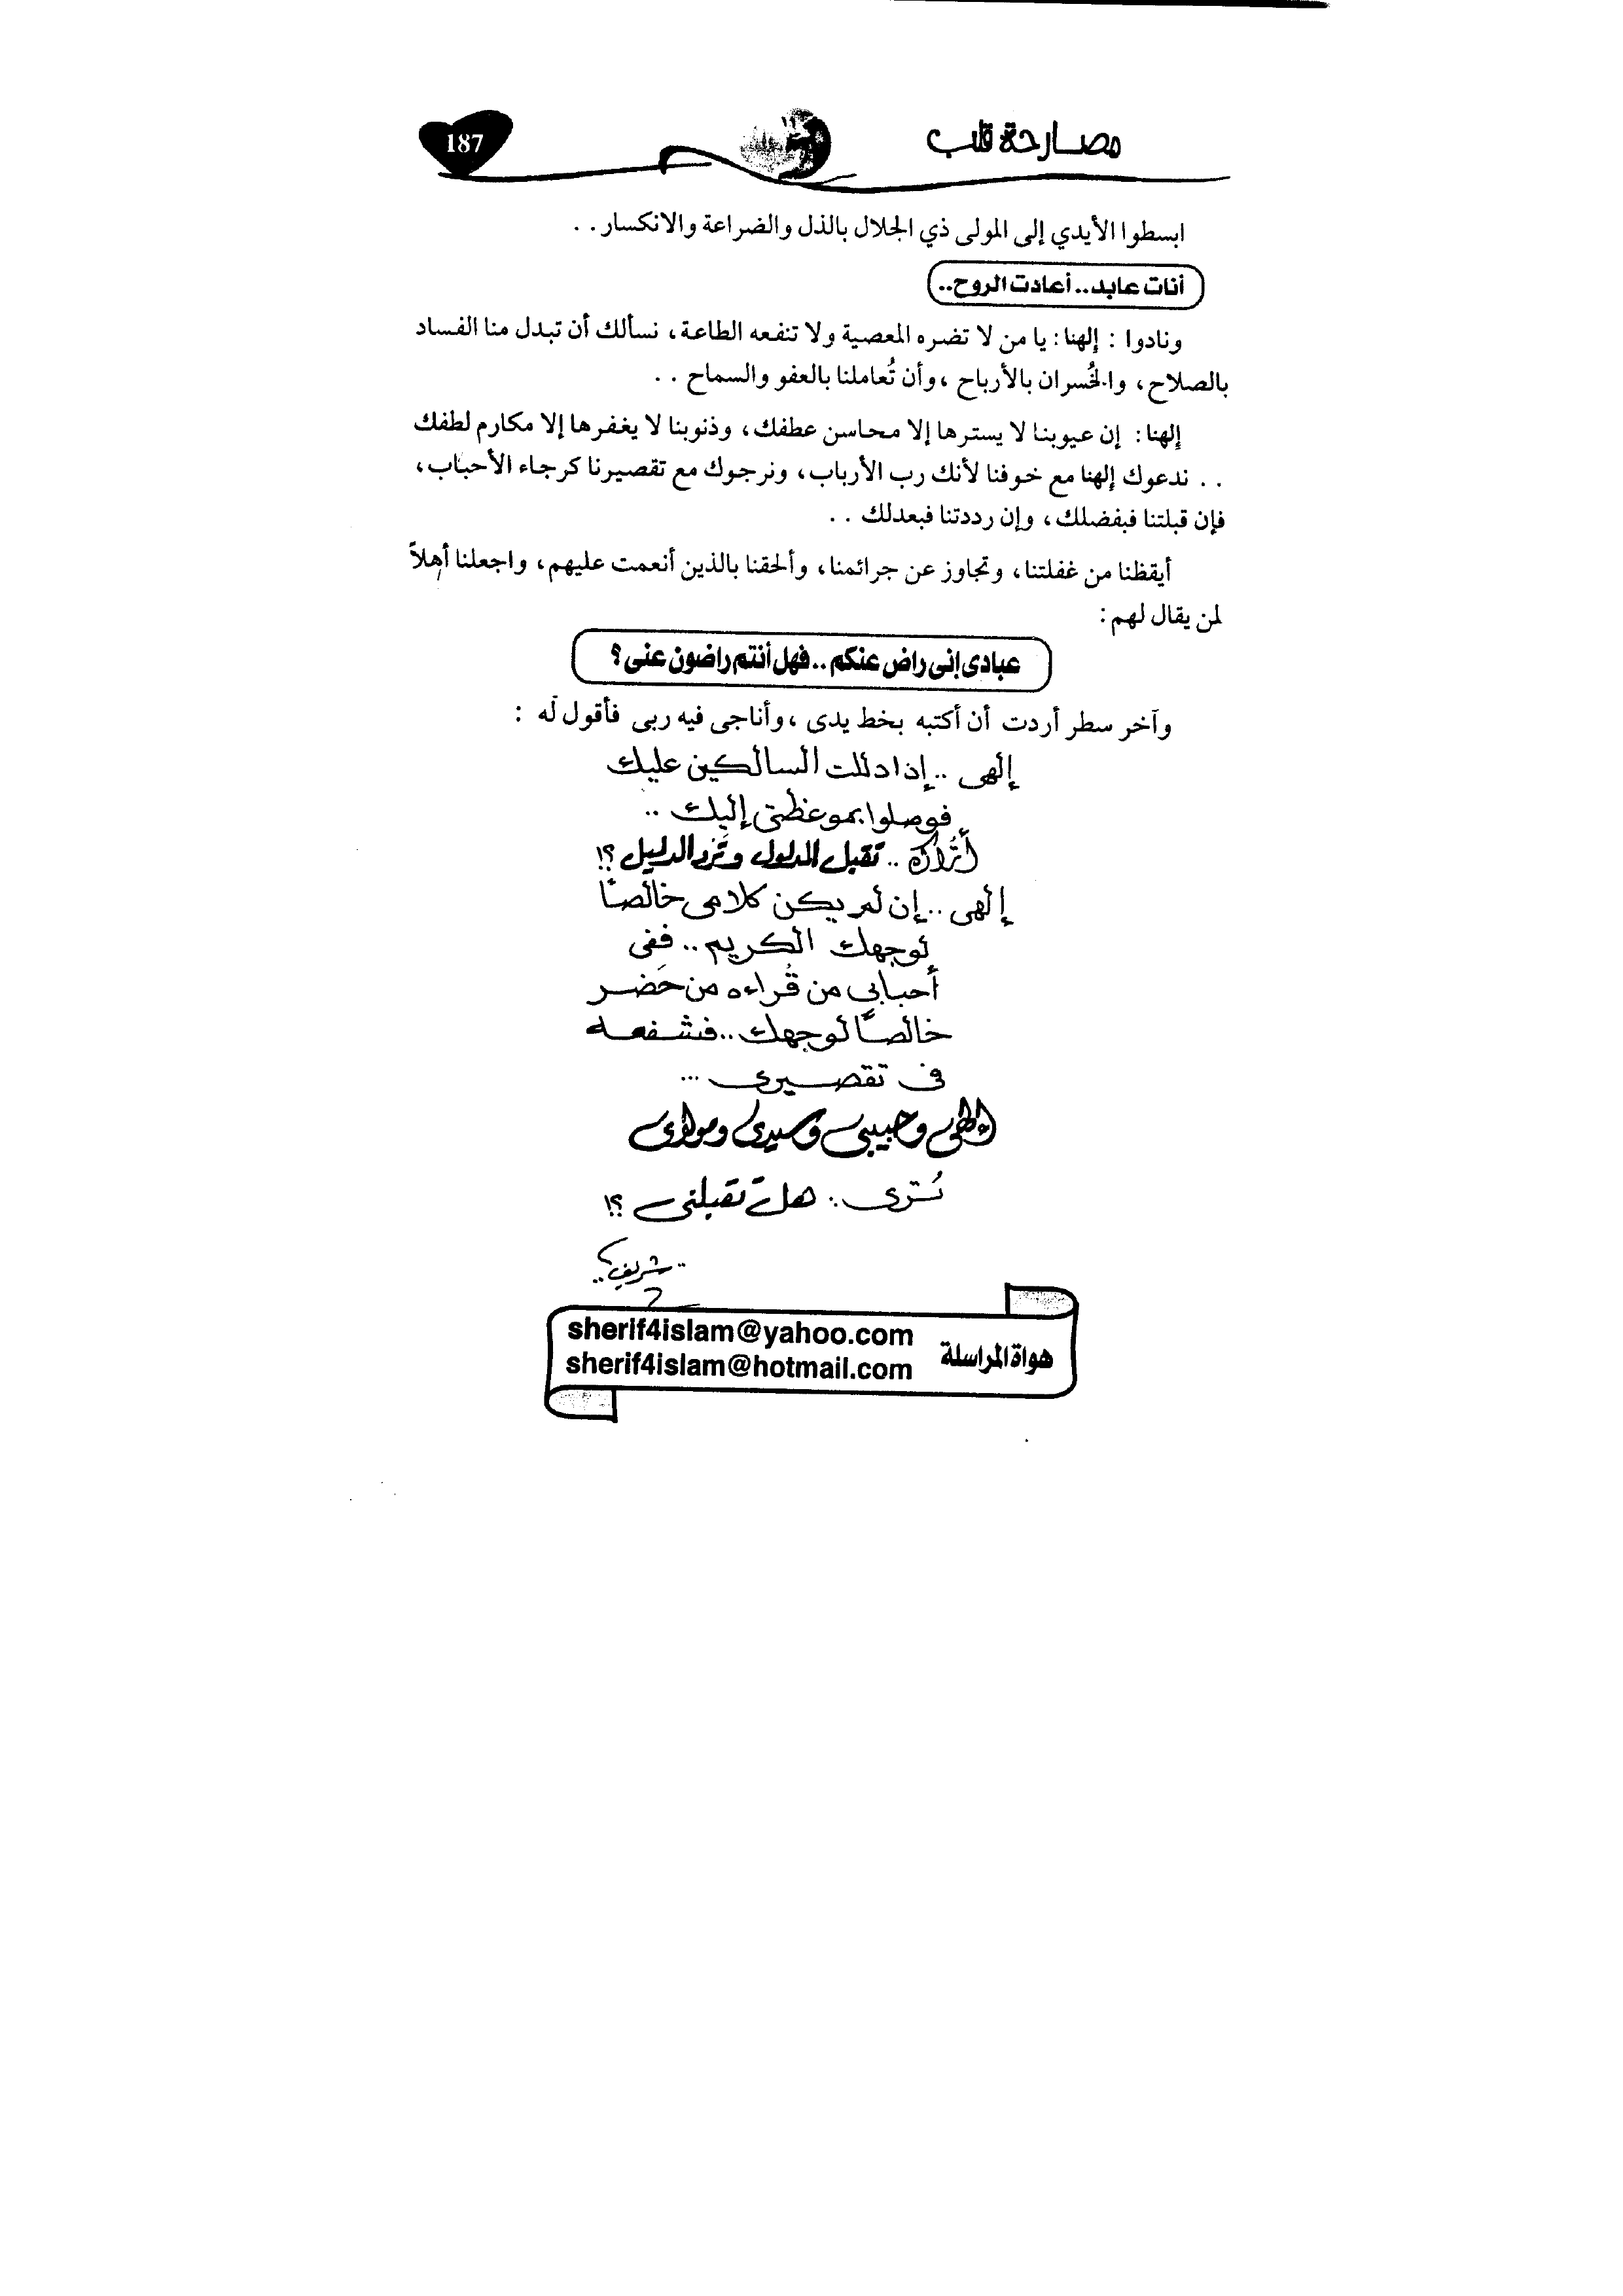 مصارحة قلب
187
ابسطوا الأيدي إلى المولى ذي الجلال بالذل والضراعة والانكسار . .
أنات عابد.. أعادت الروح..
ونادوا : إلهنا : يا من لا تضره المعصية ولا تنفعه الطاعة، نسألك أن تبدل منا الفساد
بالصلاح، والخُسران بالأرباح ،وأن تُعاملنا بالعفو والسماح . .
إلهنا : إن عيوبنا لا يسترها إلا محاسن عطفك، وذنوبنا لا يغفرها إلا مكارم لطفك
. . ندعوك إلهنا مع خوفنا لأنك رب الأرباب، ونرجوك مع تقصيرنا كرجاء الأحباب،
فإن قبلتنا فبفضلك، وإن رددتنا فبعدلك . .
أيقظنا من غفلتنا، وتجاوز عن جرائمنا، وألحقنا بالذين أنعمت عليهم، واجعلنا أهلاً
لمن يقال لهم :
عبادى إنى راض عنكم .. فهل أنتم راضون عنى ؟
وآخر سطر أردت أن أكتبه بخط يدى ،وأناجى فيه ربى فأقول له :
إلهى .. إذا دللت السالكين عليك
فوصلوا بموعظتى إليك ..
أتُراك .. تقبل المدلول وتَرد الدليل ؟!
إلهى .. إن لم يكن كلامى خالصًا
لوجهك الكريم .. ففى
أحبابى من قُراءه من حَضر
خالصًا لوجهك .. فشفعه
فى تقصيرى ...
إلهى وحبيبى وسيدى ومولاى
تُترى .. هل تقبلنى ؟!
.. شريف ..
هواة المراسلة
sherif4islam@yahoo.com
sherif4islam@hotmail.com